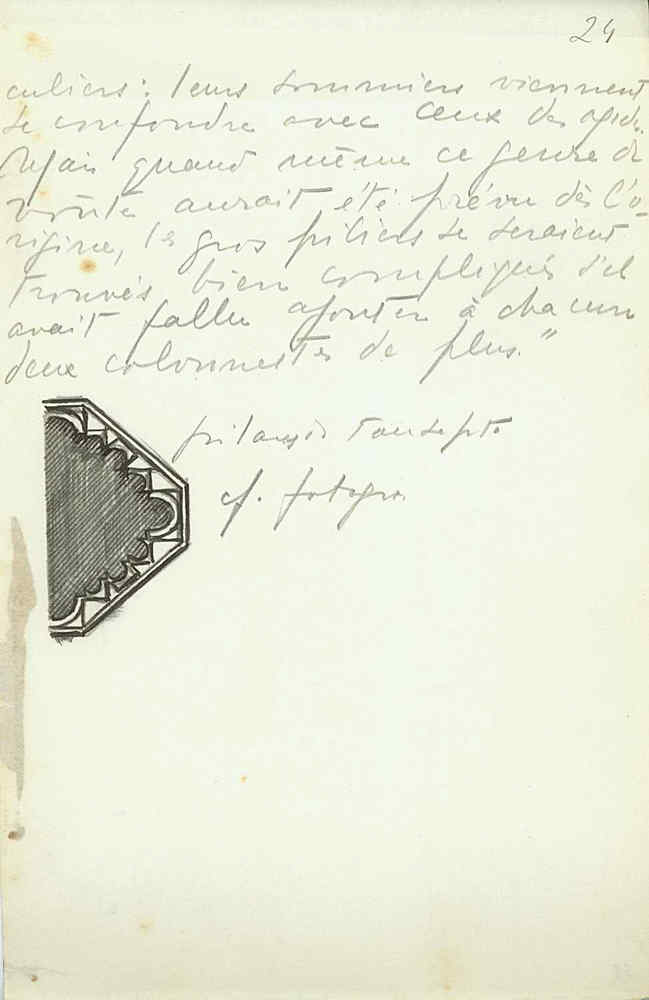 24
culiers: leurs sommiers viennent
se confondre avec ceux des ogives.
Mais quand même ce genre de
voûte aurait été prévu dès l'o-
rigine, les gros piliers se seraient
trouvés bien compliqués s'il
avait fallu ajouter à chacun
deux colonnettes de plus."
cf. fotogr.